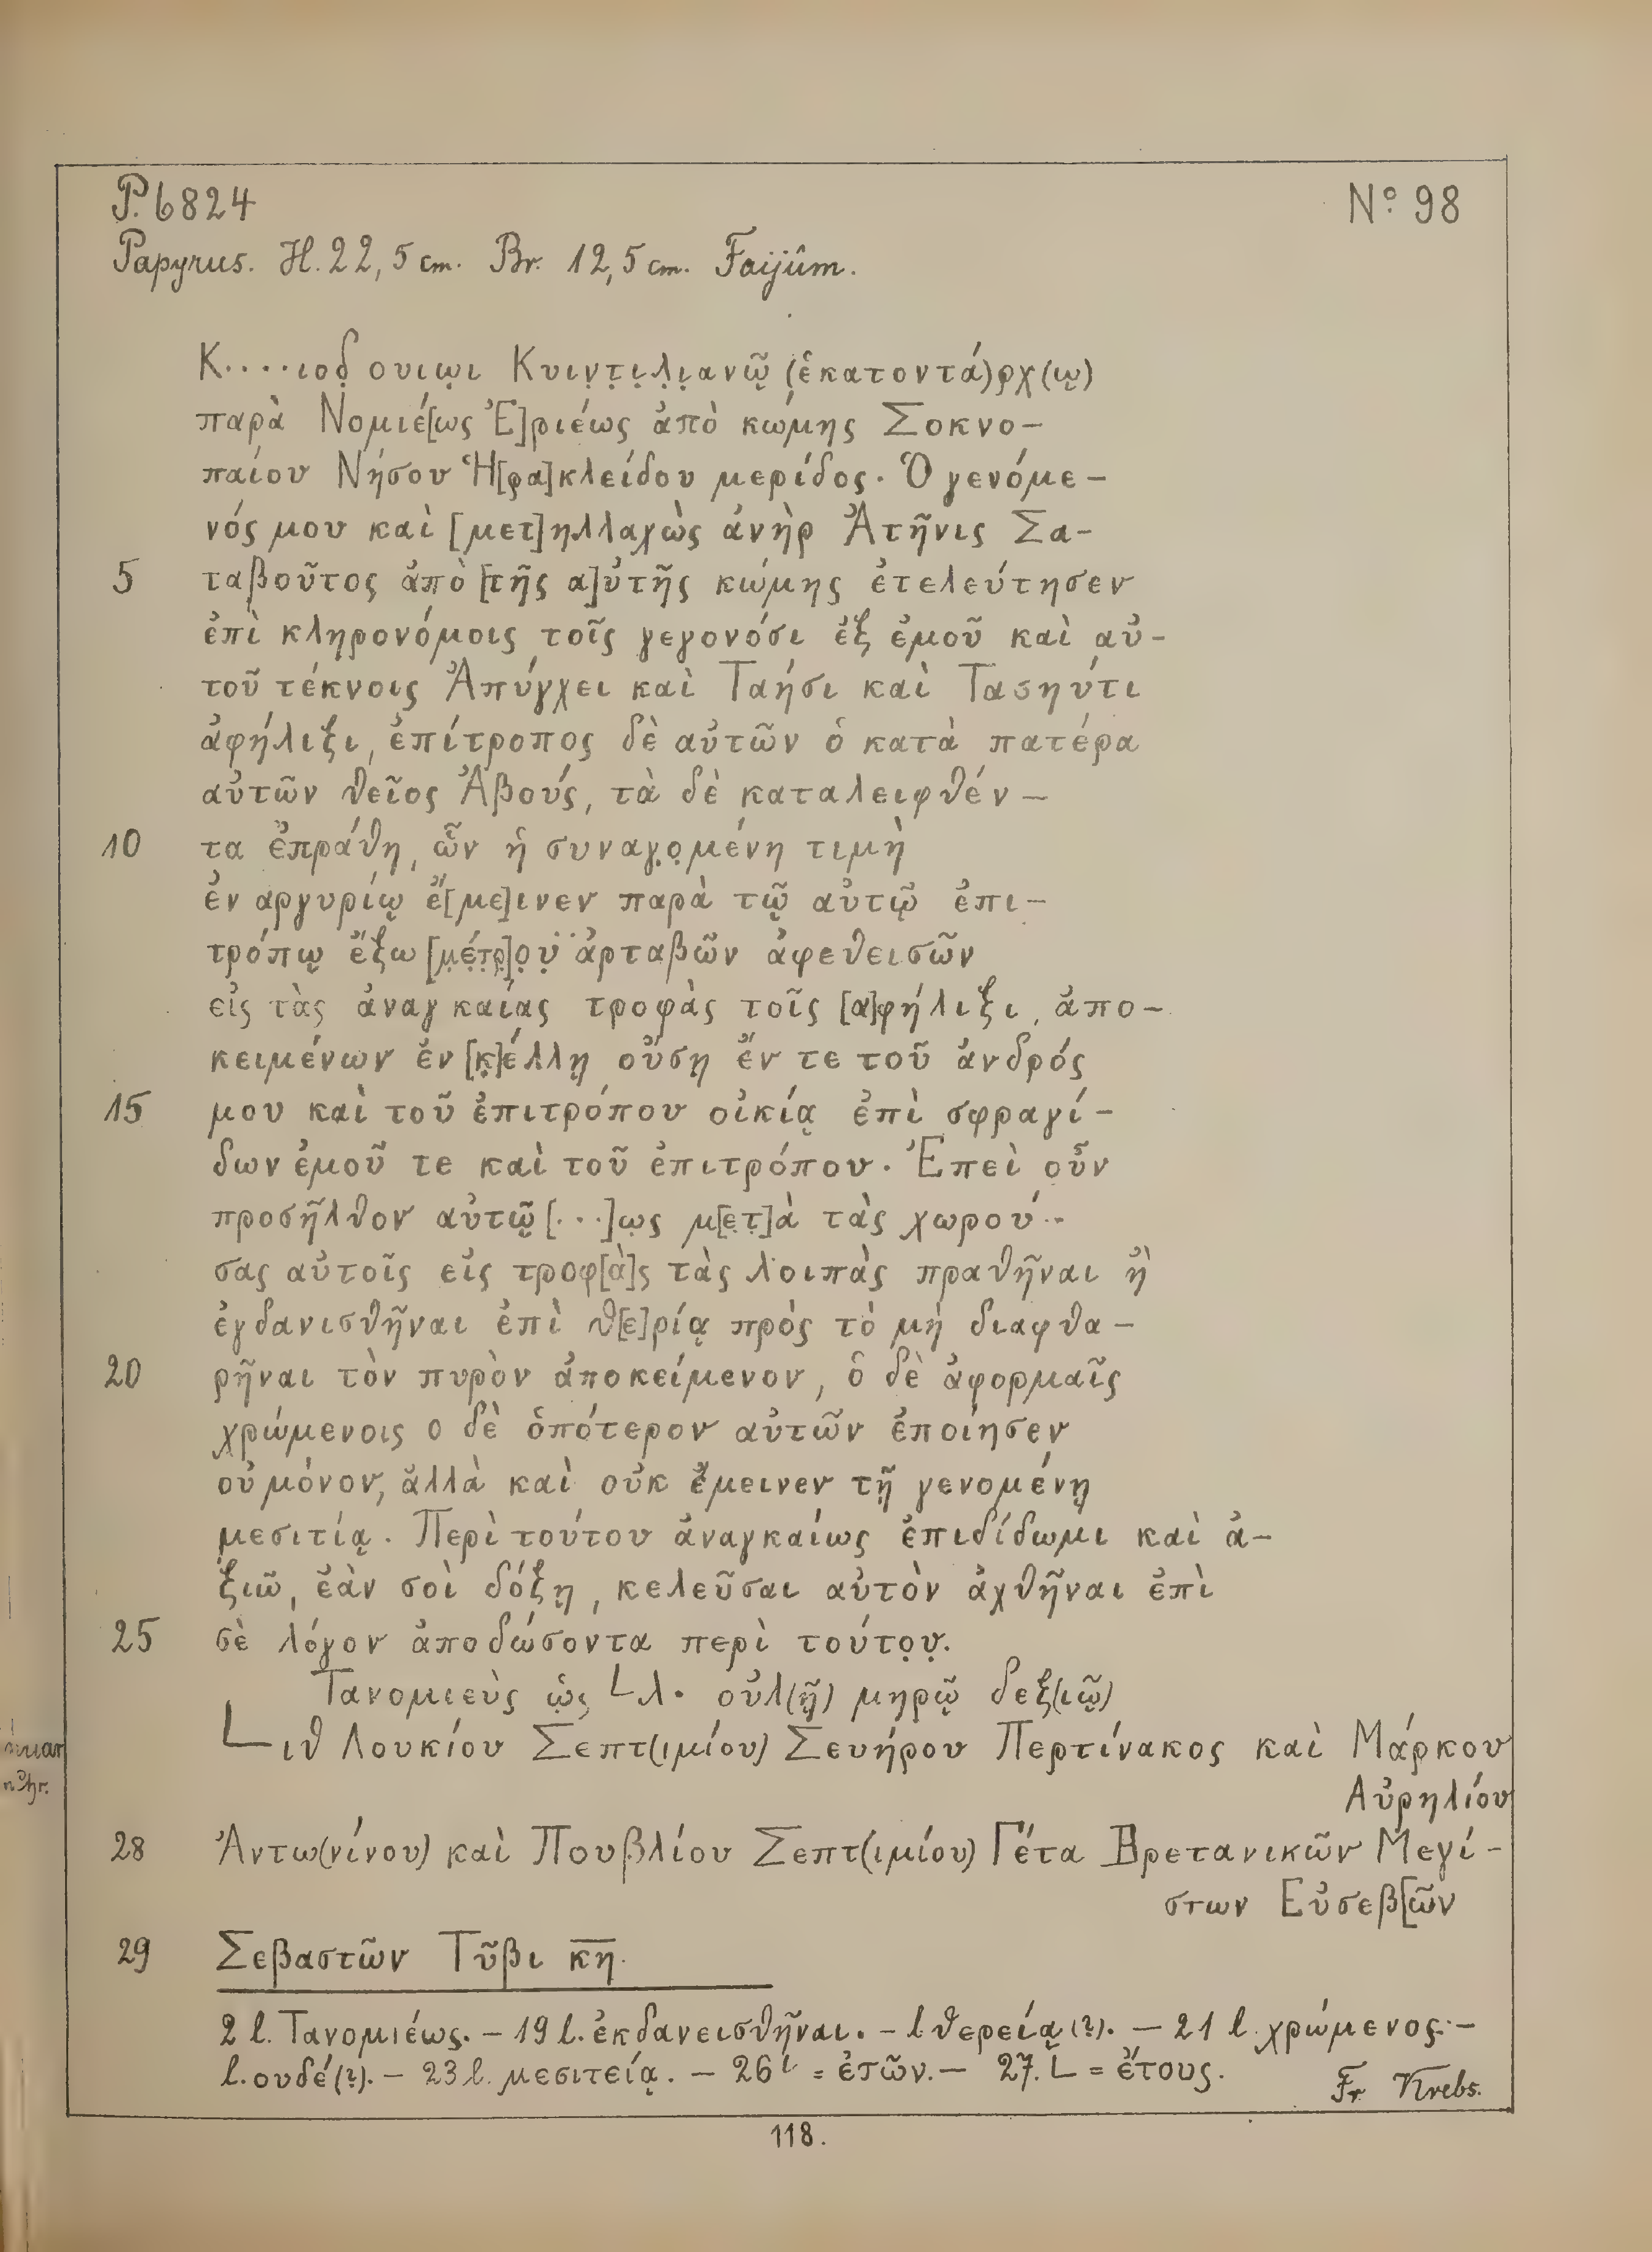 P. 6824 Nº 98
Papyrus. H. 22,5 cm. Br. 12,5 cm. Faijûm.
Κ....ιοδ̣ ουιω̣ι Κυιν̣τ̣ι̣λ̣ι̣ανῷ (ἑκατοντά)ρχ(ῳ)
παρὰ Νομιέ[ως Ἐ]ριέως ἀπὸ κώμης Σοκνο-
παίου Νήσου Ἡ[ρα]κλείδου μερίδος. Ὁ γενόμε-
νός μου καὶ [μετ]ηλλαχὼς ἀνὴρ Ἀτῆνις Σα-
5 ταβοῦτος ἀπὸ [τῆς α]ὐτῆς κώμης ἐτελεύτησεν
ἐπὶ κληρονόμοις τοῖς γεγονόσι ἐξ ἐμοῦ καὶ αὐ-
τοῦ τέκνοις Ἀπύγχει καὶ Ταήσι καὶ Τασηύτι
ἀφήλιξι, ἐπίτροπος δὲ αὐτῶν ὁ κατὰ πατέρα
αὐτῶν θεῖος Ἀβούς, τὰ δὲ καταλειφθέν-
10 τα ἐπράθη, ὧν ἡ συναγο̣μένη τιμὴ
ἐν αργυρίῳ ἔ[με]ινεν παρὰ τῷ αὐτῷ ἐπι-
τρόπῳ ἔξω [μ̣έ̣τ̣ρ̣]ο̣υ̣ ἀρταβῶν ἀφεθεισῶν
εἰς τὰς ἀναγκαίας τροφὰς τοῖς [α]φήλιξι, ἀπο-
κειμένων ἐν [κ̣]έλλῃ οὔσῃ ἔν τε τοῦ ἀνδρός
15 μου καὶ τοῦ ἐπιτρόπου οἰκίᾳ ἐπὶ σφραγί-
δων ἐμοῦ τε καὶ τοῦ ἐπιτρόπου. Ἐπεὶ οὖν
προσῆλθον αὐτῷ [...]ω̣ς μ[ε̣τ̣]ὰ τὰς χωρού-
σας αὐτοῖς εἰς τροφ[ὰ]ς τὰς λοιπὰς πραθῆναι ἢ
ἐγδανισθῆναι ἐπὶ θ[ε]ρίᾳ πρὸς τὸ μὴ διαφθα-
20 ρῆναι τὸν πυρὸν ἀποκείμενον, ὁ δὲ ἀφορμαῖς
χρώμενοις ο δὲ ὁπότερον αὐτῶν ἐποίησεν
οὐ μόνον, ἀλλὰ καὶ οὐκ ἔμεινεν τῇ γενομένῃ
μεσιτίᾳ. Περὶ τούτου ἀναγκαίως ἐπιδίδωμι καὶ ἀ-
ξιῶ, ἐάν σοὶ δόξῃ, κελεῦσαι αὐτὸν ἀχθῆναι ἐπὶ
25 σὲ λόγον ἀποδώσοντα περὶ τούτο̣υ̣.
Τανομιεὺς ὡς └ λ. οὐλ(ῇ) μηρῷ δεξ(ιῷ)
└ ιθ Λουκίου Σεπτ(ιμίου) Σευήρου Περτίνακος καὶ Μάρκου
Αὐρηλίου
28 Ἀντω(νίνου) καὶ Πουβλίου Σεπτ(ιμίου) Γέτα Βρετανικῶν Μεγί-
στων Εὐσεβ[ῶν
29 Σεβαστῶν Τῦβι κ̅η̅.
2 l. Τανομιέως. – 19 l. ἐκδανεισθῆναι. – l θερείᾳ (?). – 21 l. χρώμενος. –
l. ουδέ (?). – 23 l. μεσιτείᾳ. – 26 └ = ἐτῶν. – 27. └ = ἔτους.
Fr. Krebs.
118.